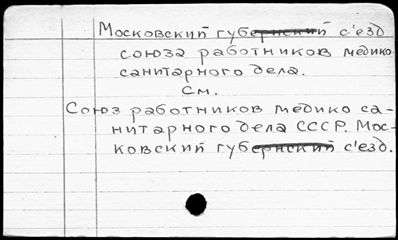 Московский губернский съезд
союза работников медико
санитарного дела.
См.
Союз работников медико са-
нитарного дела СССР. Мос-
ковский губернский с'езд.